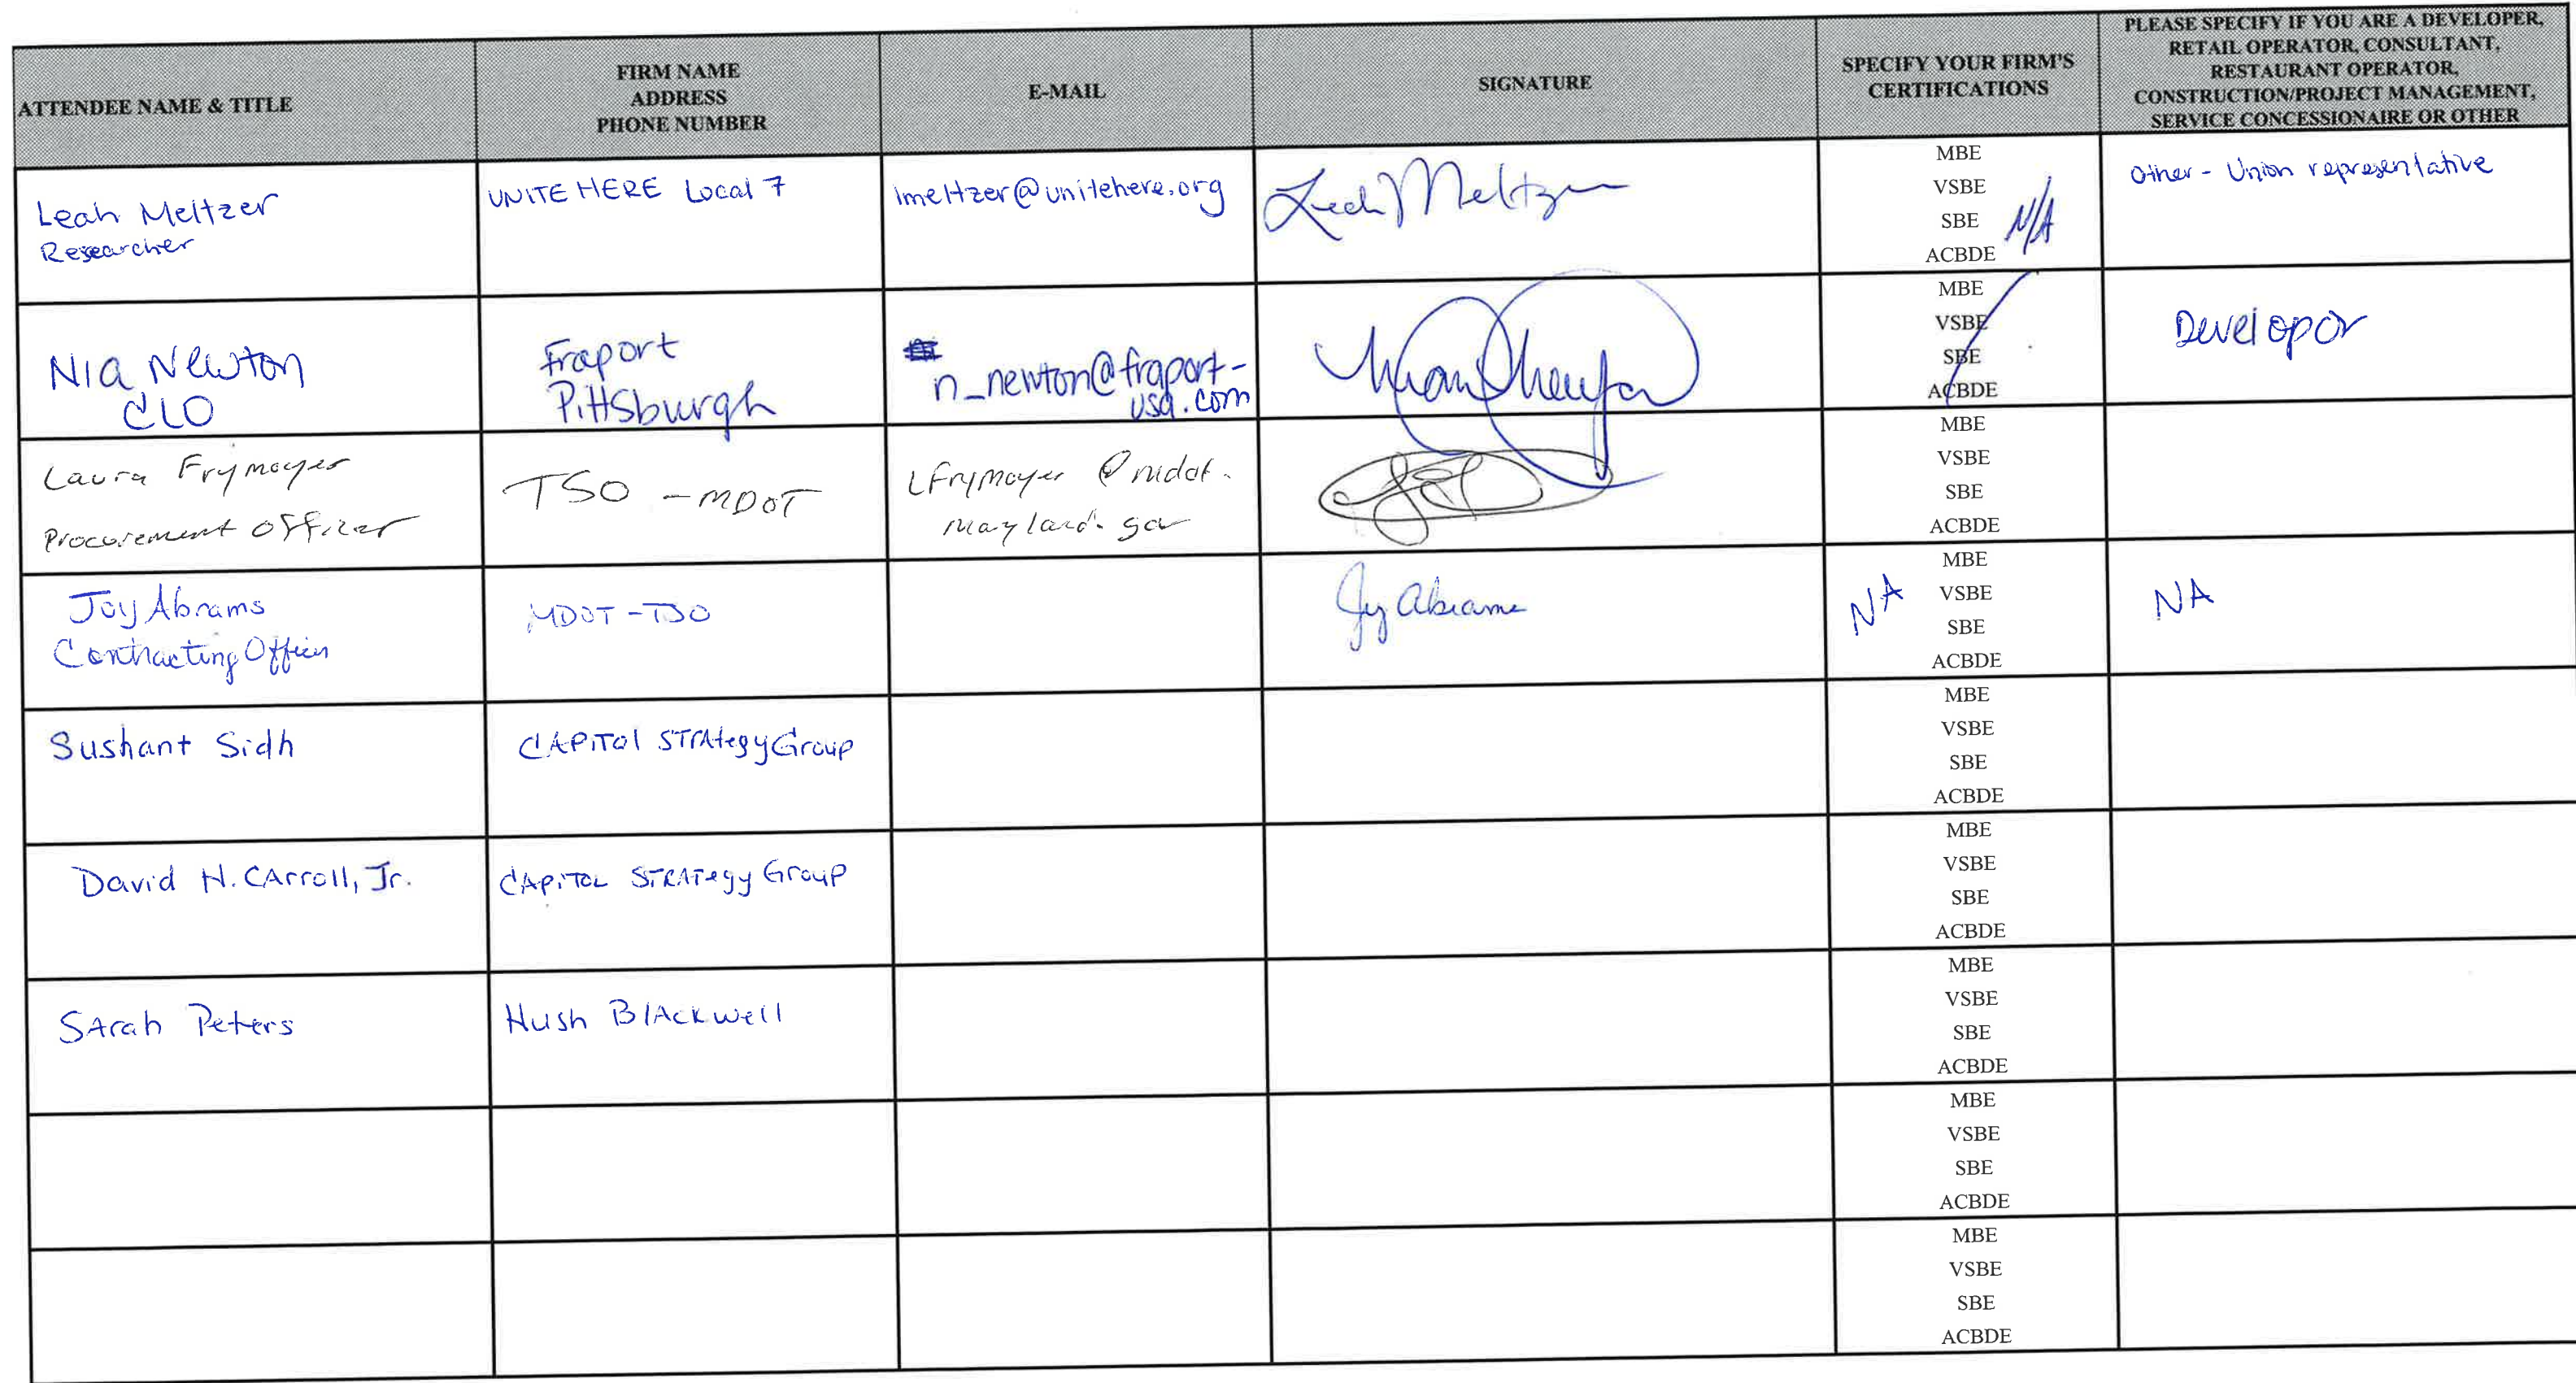 ATTENDEE NAME & TITLE
FIRM NAME
ADDRESS
PHONE NUMBER
E-MAIL
SIGNATURE
SPECIFY YOUR FIRM'S
CERTIFICATIONS
PLEASE SPECIFY IF YOU ARE A DEVELOPER,
RETAIL OPERATOR, CONSULTANT,
RESTAURANT OPERATOR,
CONSTRUCTION/PROJECT MANAGEMENT,
SERVICE CONCESSIONAIRE OR OTHER
Leah Meltzer
Researcher
UNITE HERE Local 7
lmeltzer@unitehere.org
Leah Meltzer
MBE
VSBE
SBE
ACBDE
N/A
Other - Union representative
Nia Newton
CLO
Fraport
Pittsburgh
n_newton@fraport-
usa.com
MBE
VSBE
SBE
ACBDE
Developor
Laura Frymoyer
Procurement Officer
TSO - MDOT
LFrymoyer @mdot.
maryland.gov
MBE
VSBE
SBE
ACBDE
Joy Abrams
Contracting Officer
MDOT-TSO
Joy Abrams
NA
MBE
VSBE
SBE
ACBDE
NA
Sushant Sidh
CAPITol STrAtegy Group
MBE
VSBE
SBE
ACBDE
David H. CArroll, Jr.
CAPITOL STRATegy Group
MBE
VSBE
SBE
ACBDE
SArah Peters
Hush BlAckwell
MBE
VSBE
SBE
ACBDE
MBE
VSBE
SBE
ACBDE
MBE
VSBE
SBE
ACBDE